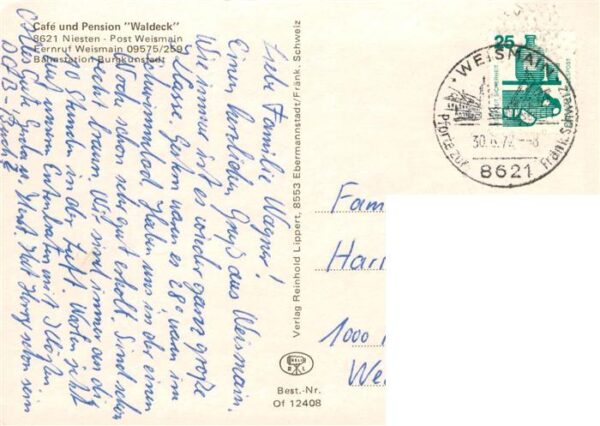 Café und Pension "Waldeck"
8621 Niesten - Post Weismain
Fernruf Weismain 09575/259
Bahnstation Burgkunstadt
Liebe Familie Wagner!
Einen herzlichen Gruß aus Weismain.
Wie immer ist es wieder ganz große
Klasse. Gestern waren es 28° warm im
Schwimmbad. Haben uns in der einen
Woche schon sehr gut erholt. Sind schon
recht braun. Wir sind immer an die
10 Stunden in der Luft. Warten jetzt
auf unseren Entenbraten mit Klößen
Alles Gute
Verlag Reinhold Lippert, 8553 Ebermannstadt/Fränk. Schweiz
Best.-Nr.
Of 12408
25
WEISMAIN
30.6.72
8621
Pforte zur Fränk. Schweiz
Fam
Harr
1000
We